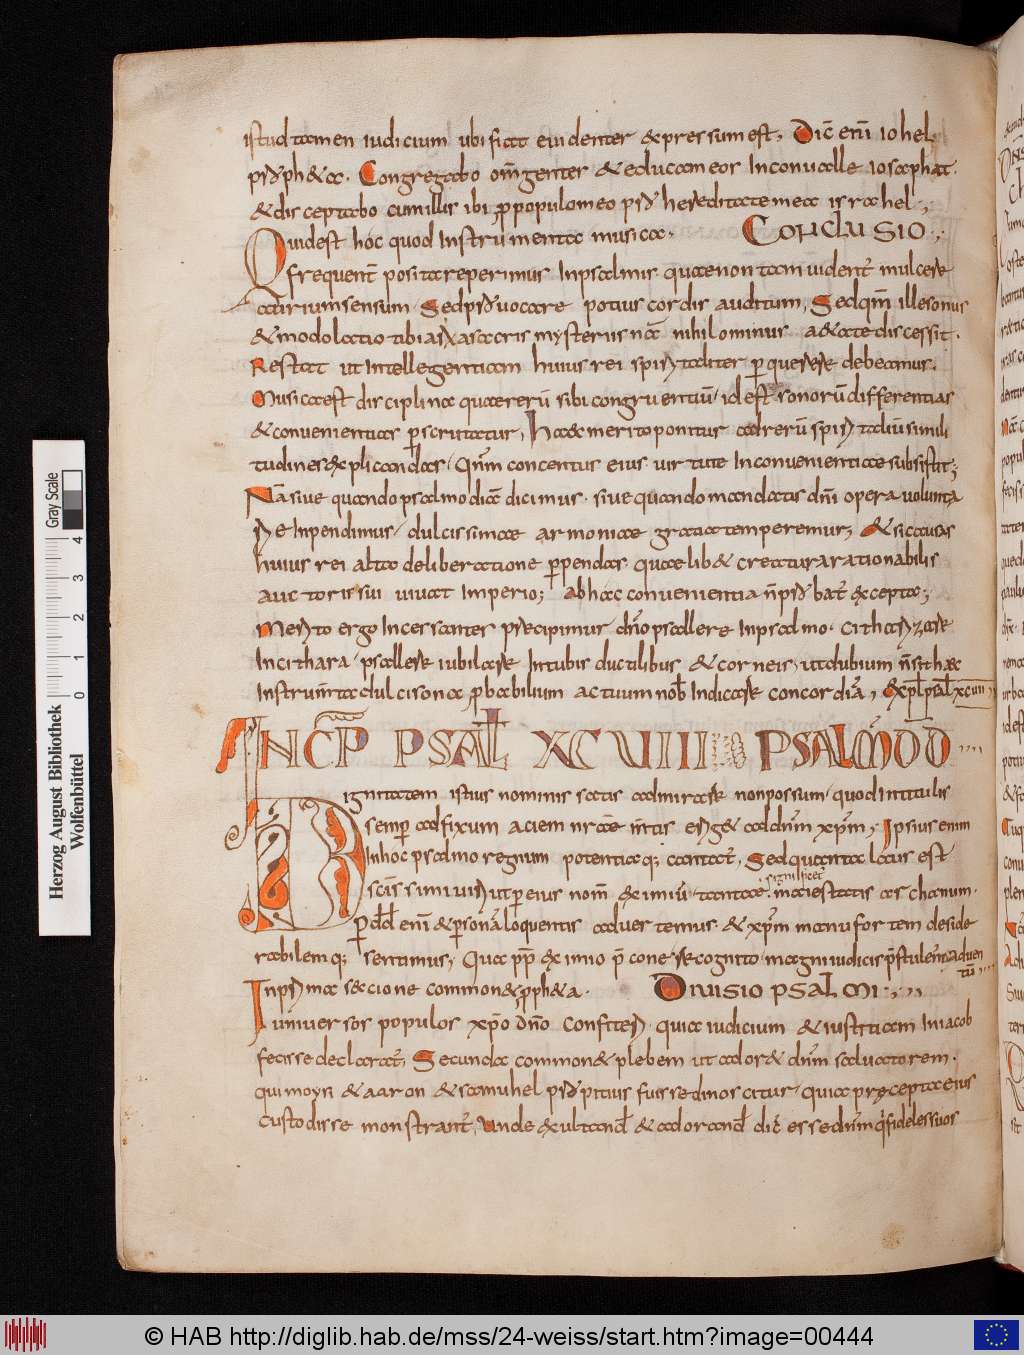 istud tamen iudicium ubi fiat euidenter expressum est, Dic̄ enī iohel
ꝓph&a. Congregabo om̄s gentes & educam eos In conualle iosaphat.
& disceptabo cum illis ibi ꝓ populo meo & hereditate mea israhel,
CONCLUSIO
Quid est hoc quod Instrumenta musica.
frequent̄ posita reperimus Inpsalmis quae non tam uident̄ mulcere
aurium sensum. Sed uocare potius cordis auditum, Sed qm̄ ille sonus
& modolatio tibias a sacris mysteriis nr̄ā nihilominus a&ate discessit.
Restat ut Intellegentiam huius rei spiritaliter perquerere debeamus.
Musica est disciplina quae rerū sibi congruentiū id est sonorū differentias
& conuenientias perscrutatur, Haec merito ponitur ad rerū spiritaliū simili
tudines explicandas. Qnm̄ concentus eius uirtute Inconuenientiae subsistit;
Nā siue quando psalmodiā dicimus. siue quando mandatis dn̄i opera uolunta
te Inpendimus, dulcissimae armoniae gratia temperemur; & si causas
huius rei alta deliberatione perpendas quaelib& creatura rationabilis
auctoris sui uiuat Imperio; ab hac conuenientia n̄ ꝓbat̄ excepta;
Merito ergo Incessanter precipimur dn̄o psallere Inpsalmo. citharizare
Incithara psallere iubilare Intubis ductilibus & corneis, ut dubium n̄ sit haec
Instrum̄ta dulcisona ꝓbabilium actuum nob̄ Indicare concordiā, Expl̄ psal̄ xcuii
INCP̄ PSAL̄ XCVIII PSALM̄ DD
Dignitatem istius nominis satis admirare non possum quod Intitulis
semper adfixum aciem nrāe mentis erig& ad dnm̄ xpm̄, Ipsius enim
Inhoc psalmo regnum potentiaq; cantat̄, Sed quanta laus est
significet
scīs simi uiri ut per eius nom̄ eximiū tantae maiestatis aschanum.
per dd̄ enī & personā loquentis aduertemus & xpm̄ manu fortem deside
rabilemq; sentimus, Quapp̄ eximio p̄cone recognito magni iudicis p̄stulem̄ aduen
tū,
Inprima sectione common& ꝓph&a. DIUISIO PSALMI.
uniuersos populos xpō dn̄o confiteri. quia iudicium & iustitiam Iniacob
fecisse declarat̄, Secunda common& plebem ut ador& dnm̄ saluatorem.
qui moysi & aaron & samuhel fuisse dinoscitur, quia praecepta eius
custodisse monstrant̄, Unde exultand̄ & adorand̄ dic̄ esse dnm̄ qui fideles suos
Herzog August Bibliothek
Wolfenbüttel
0 1 2 3 4
Gray Scale
© HAB http://diglib.hab.de/mss/24-weiss/start.htm?image=00444